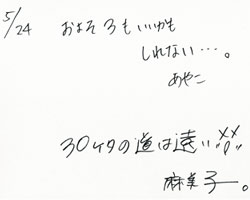 5/24 およそ3もいいかも
しれない…。
あやこ
30ケタの道は遠い
麻美子。